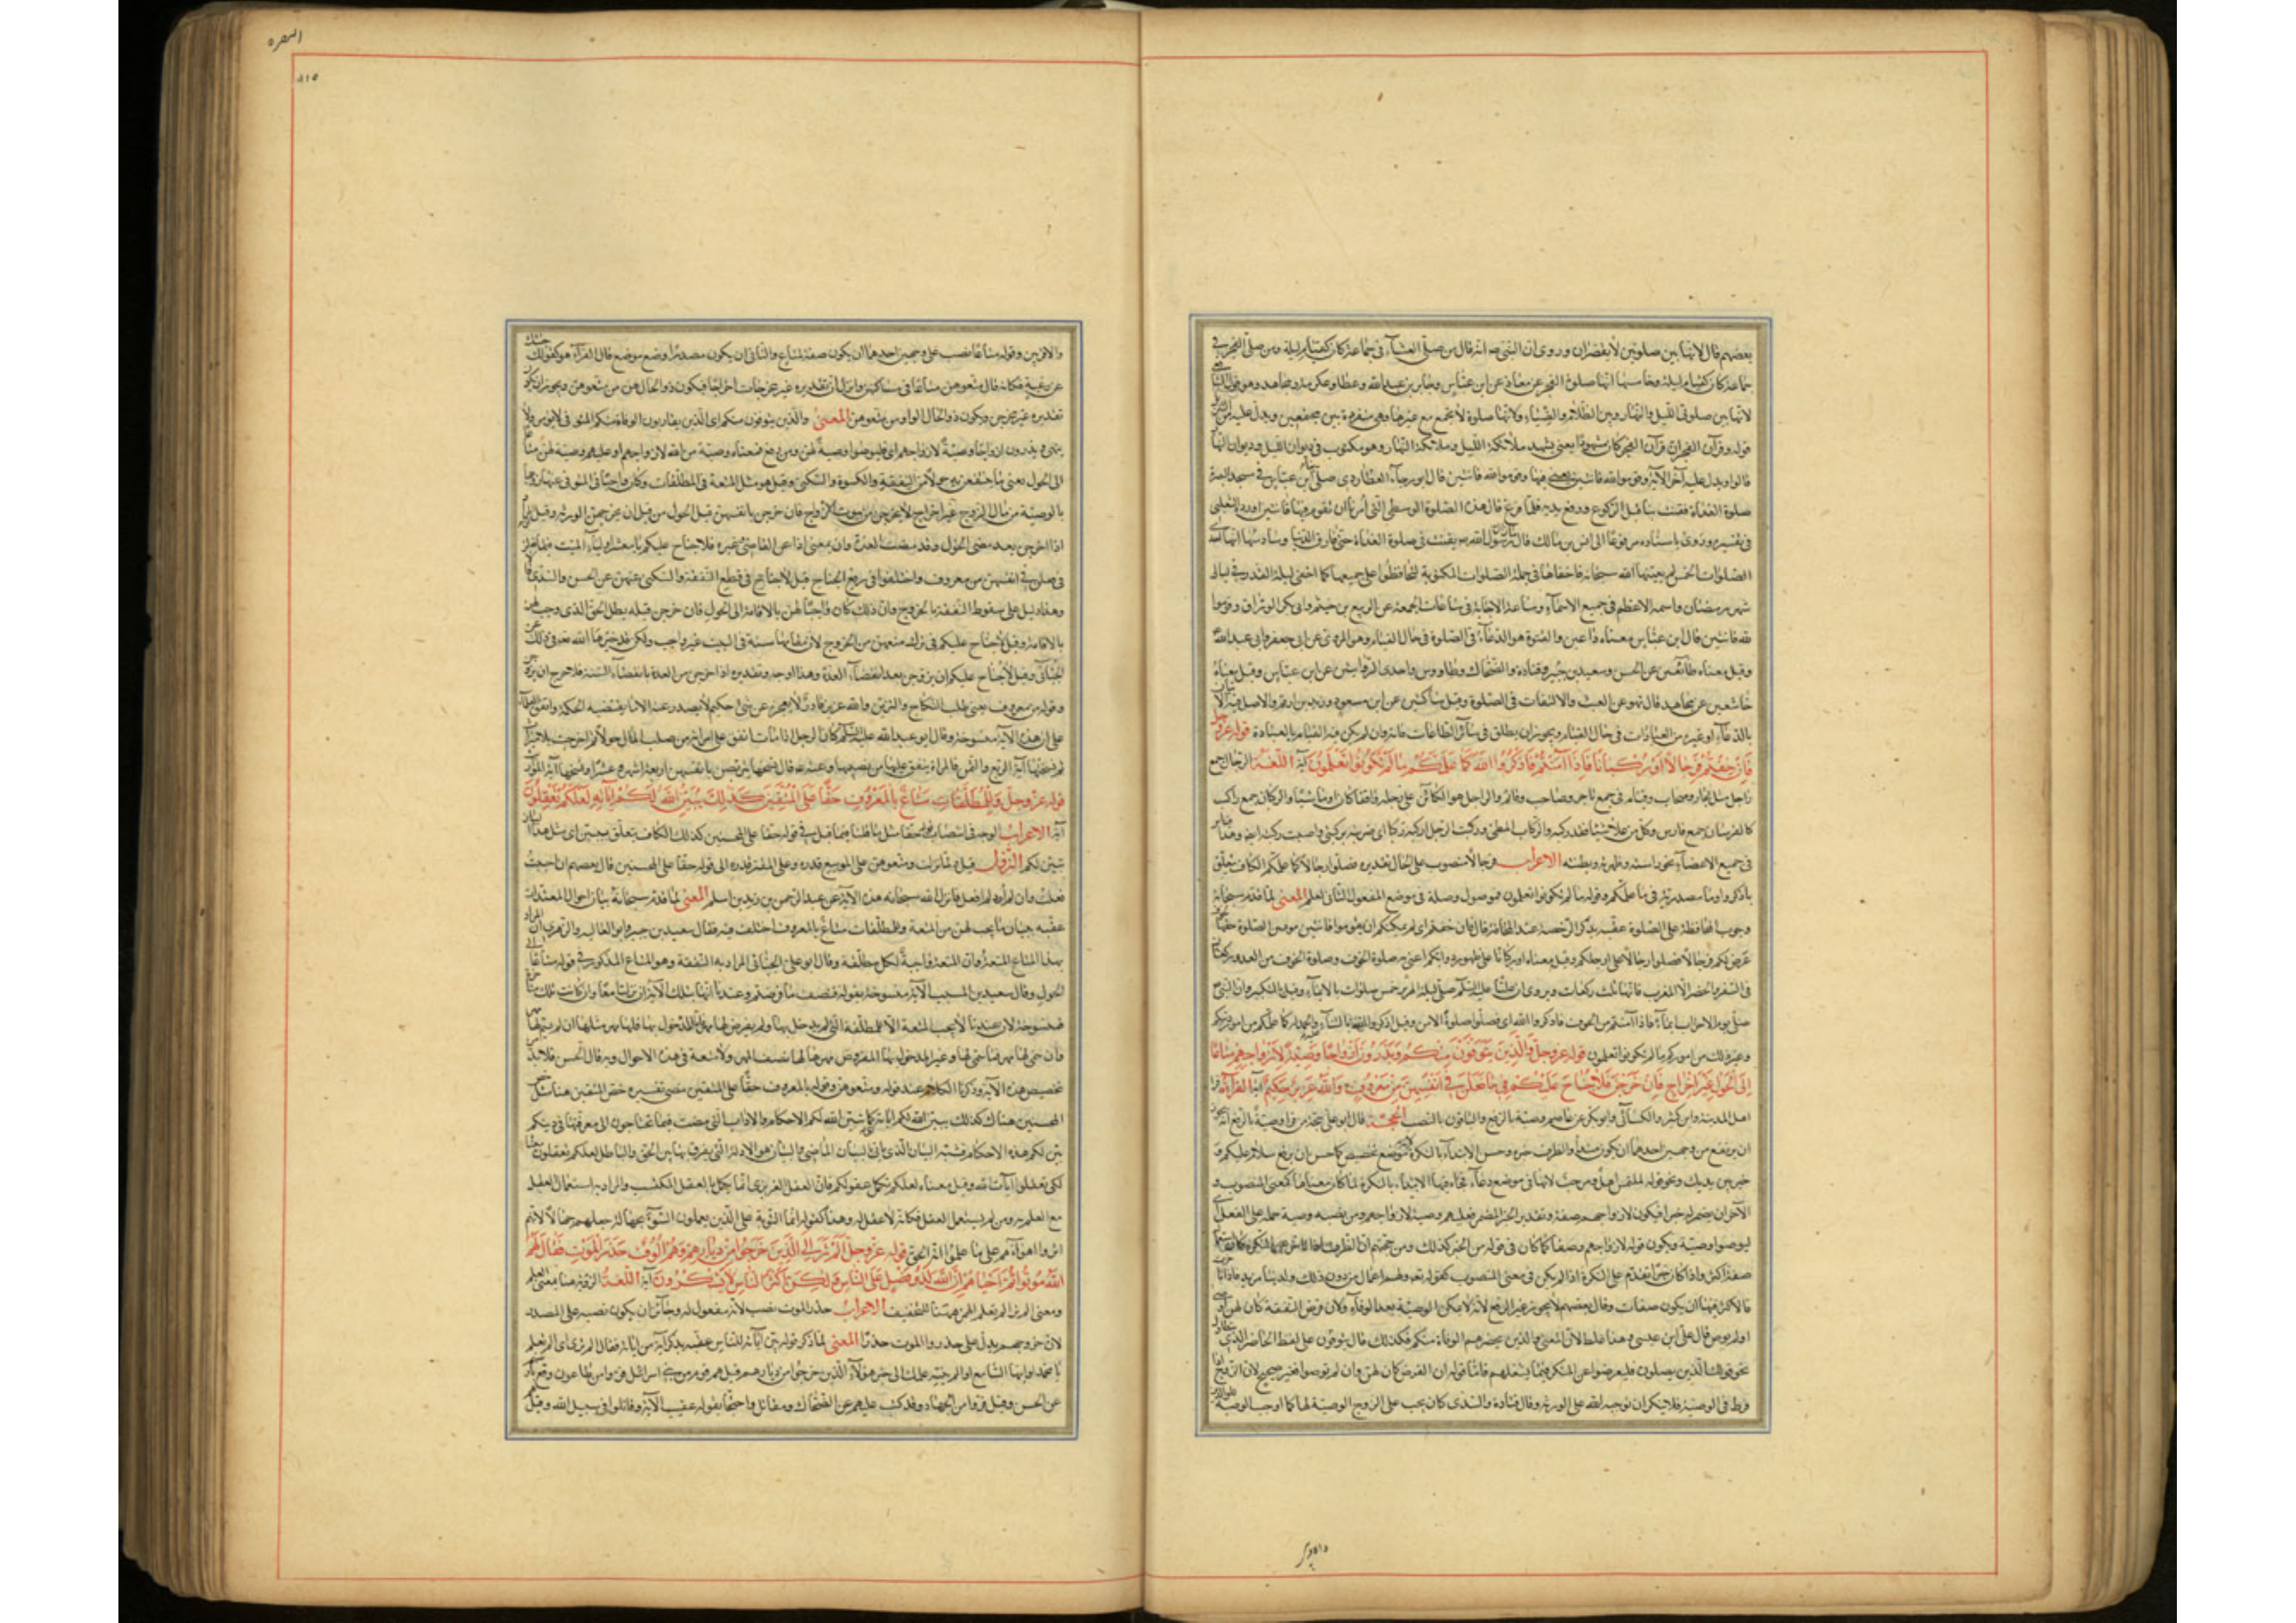 بعضهم قال لانها بين صلوتين لا يقصران وروى ان النبي انه قال من صلى العشاء في جماعة كان كقيام ليلة ومن صلى الفجر في
جماعة كان كقيام ليلة وخامسها انها صلوة الفجر عن معاذ عن ابن عباس وجابر بن عبد الله وعطا وعكرمة ومجاهد وهو قول
لانها بين صلوتي الليل والنهار وبين الظلام والضياء ولانها صلوة لا تجمع مع غيرها وهي منفردة بين مجتمعين ويدل عليه من
قوله وقرآن الفجر ان قرآن الفجر كان مشهودا يعني يشهده ملائكة الليل وملائكة النهار وهو مكتوب في ديوان الليل وديوان
قالوا ويدل عليه آخر الآية وقوموا لله قانتين يعني فيها وقوموا لله قانتين قال ابو رجاء العطاردي صلى ابن عباس في مسجد البصرة
صلوة الغداة فقنت بنا قبل الركوع ورفع يديه فلما فرغ قال هذه الصلوة الوسطى التي امرنا ان نقوم فيها قانتين اورده الثعلبي
في تفسيره وروى باسناده مرفوعا الى انس بن مالك قال رسول الله يقنت في صلوة الغداة حتى فارق الدنيا وسادسها انها
الصلوات الخمس لم يعينها الله سبحانه فاخفاها في جملة الصلوات المكتوبة ليحافظوا على جميعها كما اخفى ليلة القدر في ليالي
شهر رمضان واسمه الاعظم في جميع الاسماء وساعة الاجابة في ساعات الجمعة عن الربيع بن خيثم وابي بكر الوراق وقوموا
لله قانتين قال ابن عباس معناه داعين والقنوت هو الدعاء في الصلوة في حال القيام وهو المروي عن ابي جعفر وابي عبد الله
وقيل معناه طائعين عن الحسن وسعيد بن جبير وقتادة والضحاك وطاووس واحدى الروايتين عن ابن عباس وقيل معناه
خاشعين عن مجاهد قال نهوا عن العبث والالتفات في الصلوة وقيل ساكتين عن ابن مسعود وزيد بن ارقم والاصل فيه
بالدعاء او غيره من العبادات في حال القيام ويجوز ان يطلق في سائر الطاعات فانه وان لم يكن فيه القيام بالعبادة قوله عز وجل
فان خفتم فرجالا او ركبانا فاذا امنتم فاذكروا الله كما علمكم ما لم تكونوا تعلمون آية اللغة الرجال جمع
راجل مثل تجار وصحاب وقيام في جمع تاجر وصاحب وقائم والراجل هو الكائن على رجله واقفا كان او ماشيا والركبان جمع راكب
كالفرسان جمع فارس وكل من علا شيئا فقد ركبه والركاب المطي وركبت الرجل اركبه ركبا اى ضربته بركبتي واصبت ركبته ايضا وهذا
في جميع الاعضاء نحو راسته وظهرته وبطنته الاعراب فرجالا منصوب على الحال تقديره فصلوا رجالا كما علمكم الكاف يتعلق
باذكروا وما مصدرية في ما علمكم وقوله ما لم تكونوا تعلمون موصول وصلة في موضع المفعول الثاني لعلم المعنى لما قدم سبحانه
وجوب المحافظة على الصلوة عقبه بذكر الرخصة عند المخافة فقال فان خفتم اى لم يمكنكم ان تقوموا قانتين موفين الصلوة حقها
عرض لكم فرجالا اي فصلوا رجالا على ارجلكم وقيل معناه او ركبانا على ظهور دوابكم اعني به صلوة الخوف وصلوة الخوف من العدو ركعتان
في السفر والحضر الا المغرب فانها ثلث ركعات ويروى ان عليا عليه السلام صلى ليلة الهرير خمس صلوات بالايماء وقيل بالتكبير وان النبي
صلى يوم الاحزاب ايماء فاذا امنتم من الخوف فاذكروا الله اى فصلوا صلوة الامن وقيل اذكروا الله بالثناء والحمد له كما علمكم من امور دينكم
وغير ذلك من اموركم ما لم تكونوا تعلمون قوله عز وجل والذين يتوفون منكم ويذرون ازواجا وصية لازواجهم متاعا
الى الحول غير اخراج فان خرجن فلا جناح عليكم في ما فعلن في انفسهن من معروف والله عزيز حكيم آية القراءة
اهل المدينة وابن كثير والكسائي وابو بكر عن عاصم وصية بالرفع والباقون بالنصب الحجة قال ابو علي حجة من قرأ وصية بالرفع انه
ان يرتفع من وجهين احدهما ان يكون مبتدأ والظرف خبره وحسن الابتداء بالنكرة لانه موضع تخصيص كما حسن ان يرتفع سلام عليكم
خير بين يديك ونحو قوله لملتمس اهل ومرحب لانها في موضع دعاء فجاء فيها الابتداء بالنكرة لما كان معناها كمعنى المنصوب و
الآخر ان يضمر له خبرا فيكون لازواجهم صفة وتقدير الخبر المضمر فعليهم وصية لازواجهم ومن نصبه وصية حمله على الفعل
ليوصوا وصية ويكون قوله لازواجهم وصفا كما كان في قوله من الخبر كذلك ومن حجتهم ان الظرف اذا تاخر عن النكرة كان
صفة اكثر واذا كان خبرا تقدم على النكرة اذا لم يكن في معنى المنصوب كقوله تعالى ولهم اعمال من دون ذلك ولدينا مزيد فاذا
فالاكثر فيها ان يكون صفات وقال بعضهم لا يجوز غير الرفع لانه لا يمكن الوصية بعد الوفاة ولان فرض النفقة كان لهن
او لم يوص قال علي ابن عيسى وهذا غلط لان المعنى والذين يحضرهم الوفاة منكم فلذلك قال يتوفون على لفظ الحاضر الذي
نحو قولك الذين يصلون فليعرضوا عن المنكر فيما يشغلهم فاما قوله ان الفرض كان لهن وان لم يوصوا فغير صحيح لان الزوج
فرط في الوصية فلا ينكر ان يوجبه الله على الورثة وقال قتادة والسدى كان يجب على الزوج الوصية لها كما اوجب الوصية
دالاول
البقره
والاقربين وقوله متاعا نصب على وجهين احدهما ان يكون صفة لمتاع والثاني ان يكون مصدرا وضع موضع قال الفراء هو كقولك
عن غيبة فكانه قال متعوهن متاعا في مساكنهن والزاد تقديره غير مخرجات اخراجا فيكون ذو الحال هن من متعوهن ويجوز ان يكون
تقديره غير مخرجين ويكون ذو الحال الواو من متعوهن المعنى والذين يتوفون منكم اى الذين يقاربون الوفاة منكم لان المتوفى لا يؤمر ولا
ينهى ويذرون ازواجا وصية لازواجهم اى فليوصوا وصية لهن ومن رفع فمعناه وصية من الله لازواجهم او عليهم وصية لهن متاعا
الى الحول يعني ما ينتفعن به حولا من النفقة والكسوة والسكنى وقيل هو مثل المتعة في المطلقات وكان واجبا في المتوفى عنها زوجها
بالوصية من مال الزوج غير اخراج لا يخرجن من بيوت الازواج فان خرجن بانفسهن قبل الحول من قبل ان يخرجهن الورثة وقيل
اذا خرجن بعد مضي الحول وقد مضت العدة فلا جناح عليكم يا معشر اولياء الميت فيما فعلن
في انفسهن من معروف واختلفوا في رفع الجناح قيل لا جناح في قطع النفقة والسكنى عنهن عن الحسن والسدى
وهذا دليل على سقوط النفقة بالخروج وان ذلك كان واجبا لهن بالاقامة الى الحول فان خرجن قبله بطل الحق الذي وجب لهن
بالاقامة وقيل لا جناح عليكم في ترك منعهن من الخروج لان مقامها سنة في البيت غير واجب ولكن قد خيرها الله تعالى في ذلك
الجبائي وقيل لا جناح عليكم ان تزوجن بعد انقضاء العدة وهذا اوجه وتقديره اذا خرجن من العدة بانقضاء السنة فلا حرج ان تزوجن
وقوله من معروف يعني طلب النكاح والتزين والله عزيز قادر لا يعجزه عن شئ حكيم لا يصدر عنه الا ما يقتضيه الحكمة واتفق العلماء
على ان هذه الآية منسوخة وقال ابو عبد الله عليه السلام كان الرجل اذا مات انفق على امرأته من صلب المال حولا ثم اخرجت بلا ميراث
ثم نسختها آية الربع والثمن فالمرأة ينفق عليها من نصيبها وعنه قال نسختها يتربصن بانفسهن اربعة اشهر وعشرا ونسختها آية المواريث
قوله عز وجل وللمطلقات متاع بالمعروف حقا على المتقين كذلك يبين الله لكم آياته لعلكم تعقلون
آية الاعراب الوجه في انتصاب قوله حقا مثل ما قلنا فيما قبل في قوله حقا على المحسنين كذلك الكاف يتعلق بيبين اى مثل هذا
تبين لكم النزول قيل لما نزلت ومتعوهن على الموسع قدره وعلى المقتر قدره الى قوله حقا على المحسنين قال بعضهم ان احببت
فعلت وان لم ارد لم افعل فانزل الله سبحانه هذه الآية عن عبد الرحمن بن زيد بن اسلم المعنى لما قدم سبحانه بيان احوال المعتدات
عقبه ببيان ما يجب لهن من المتعة وللمطلقات متاع بالمعروف اختلف فيه فقال سعيد بن جبير وابو العالية والزهري ان
بهذا المتاع المتعة وان المتعة واجبة لكل مطلقة وقال ابو علي الجبائي المراد به النفقة وهو المتاع المذكور في قوله متاعا
الحول وقال سعيد بن المسيب الآية منسوخة بقوله فنصف ما فرضتم وعندنا انها مخصوصة بتلك الآية ان نزلتا معا وان كانت تلك متأخرة
فمنسوخة لان عندنا لا يجب المتعة الا للمطلقة التي لم يدخل بها ولم يفرض لها مهر فاما المدخول بها فلها مهر مثلها ان لم يسم لها
فان سمى لها مهر فما سمى لها وغير المدخول بها المفروض مهرها لها نصف المهر ولا متعة في هذه الاحوال وبه قال الحسن فلا بد
تخصيص هذه الآية وذكرنا الكلام عند قوله ومتعوهن وقوله بالمعروف حقا على المتقين مضى تفسيره خص المتقين هنا
المحسنين هناك كذلك يبين الله لكم آياته كما بين الله لكم الاحكام والآداب التي مضت فيما تحتاجون الى معرفتها في دينكم
يبين لكم هذه الاحكام فشبه البيان الذي ياتي بالبيان الماضي والبيان هو الادلة التي يفرق بها بين الحق والباطل لعلكم تعقلون
لكي تعقلوا آيات الله وقيل معناه لعلكم تكمل عقولكم فان العقل الغريزي انما يكمل بالعقل المكتسب والمراد به استعمال العقل
مع العلم به ومن لم يستعمل العقل فكانه لا عقل له وهذا كقوله انما التوبة على الله للذين يعملون السوء بجهالة جعلهم جهالا لانهم
آثروا اهواءهم على ما علموا انه الحق قوله عز وجل الم تر الى الذين خرجوا من ديارهم وهم الوف حذر الموت فقال لهم
الله موتوا ثم احياهم ان الله لذو فضل على الناس ولكن اكثر الناس لا يشكرون آية اللغة الرؤية هنا بمعنى العلم
ومعنى الم تر الم تعلم الاعراب حذر الموت نصب لانه مفعول له وجائز ان يكون نصبه على المصدر
لان خروجهم يدل على حذروا الموت حذرا المعنى لما ذكر قوله يبين آياته للناس عقبه بذكر آية من آياته فقال الم تر اى الم تعلم
يا محمد او ايها السامع او لم ينته علمك الى خبر هؤلاء الذين خرجوا من ديارهم قيل هم قوم من بني اسرائيل فروا من طاعون وقع
عن الحسن وقيل فروا من الجهاد وقد كتب عليهم عن الضحاك ومقاتل واحتجا بقوله عقيب الآية وقاتلوا في سبيل الله وقيل